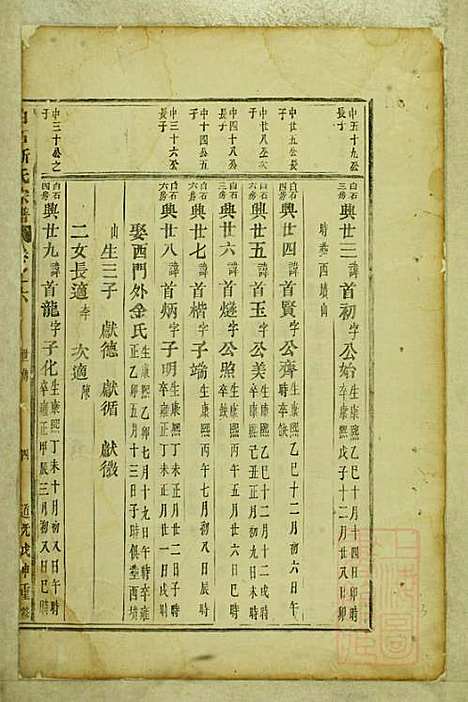 中五十九公長子
白石三房 興世三 諱首初 字公始 生康熙乙巳十月十四日卯時 卒康熙戊子十二月廿八日卯
時葬西墳山
中廿五公長子
白石四房 興世四 諱首賢 字公齊 生康熙乙巳十二月初六日午時 卒缺
中廿八公次子
白石六房 興世五 諱首玉 字公美 生康熙乙巳十二月十二戌時 卒康熙己丑正月初九日未時
中四十八公長子
白石六房 興世六 諱首燧 字公照 生康熙丙午五月廿六日巳時 卒缺
中四十公五子
白石四房 興世七 諱首楷 字子端 生康熙丙午七月初三日辰時
中三十六公長子
白石六房 興世八 諱首炳 字子明 生康熙丁未正月廿二日子時 卒雍正 月廿一日戌時
娶西門外金氏 生康熙乙卯七月十九日午時卒雍正乙卯五月十三日子時俱葬西墳
山 生三子 獻德 獻循 獻徵
二女長適李 次適陳
中三十公之子
白石四房 興世九 諱首龍 字子化 生康熙丁未十月初八日午時 卒雍正甲辰三月初八日巳時
氏宗譜 卷之六 四 道光戊申重修